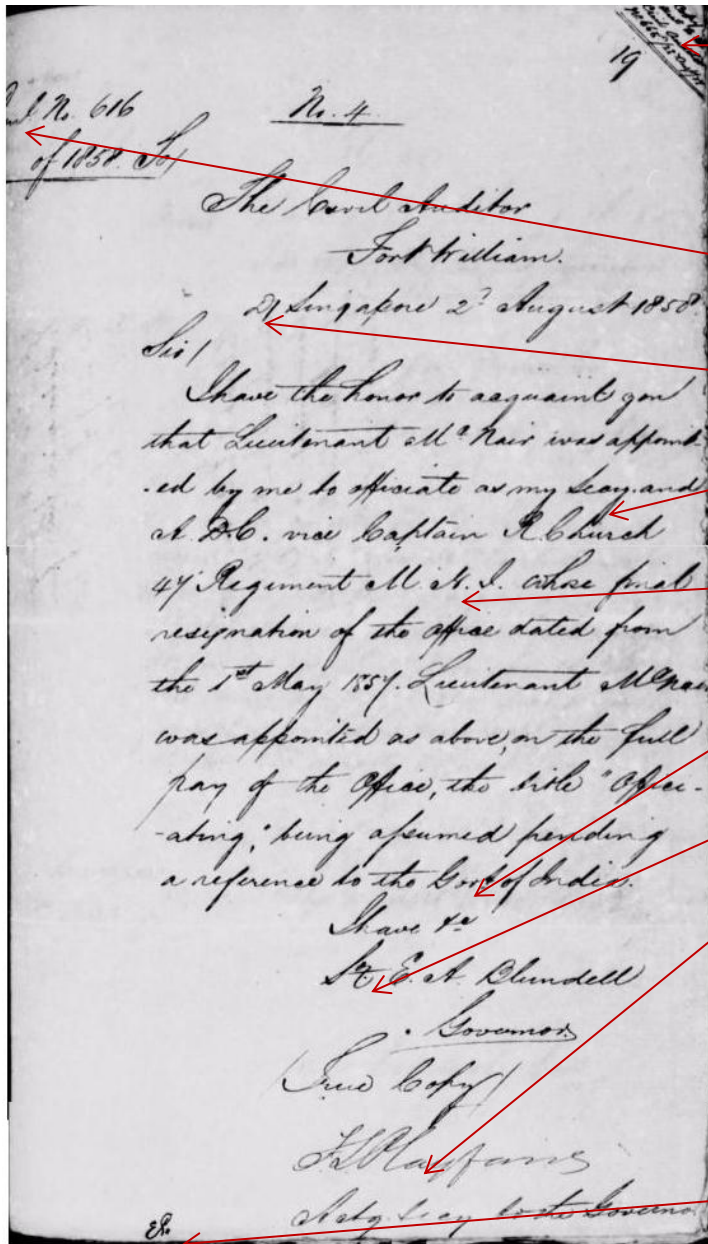 19
No. 616
No. 4
of 1858. To/
The Civil Auditor
Fort William.
Dd/ Singapore 2d August 1858.
Sir/
I have the honor to acquaint you
that Lieutenant McNair was appoint-
-ed by me to officiate as my Secy. and
A. D.C. vice Captain R Church
47 Regiment M. N. I. whose final
resignation of the office dated from
the 1st May 1857. Lieutenant McNair
was appointed as above, on the full
pay of the Office, the title "Offici-
-ating," being assumed pending
a reference to the Govt of India.
I have &c
Sd. E. A. Blundell
Governor
/True Copy/
Actg. Secy to the Governor